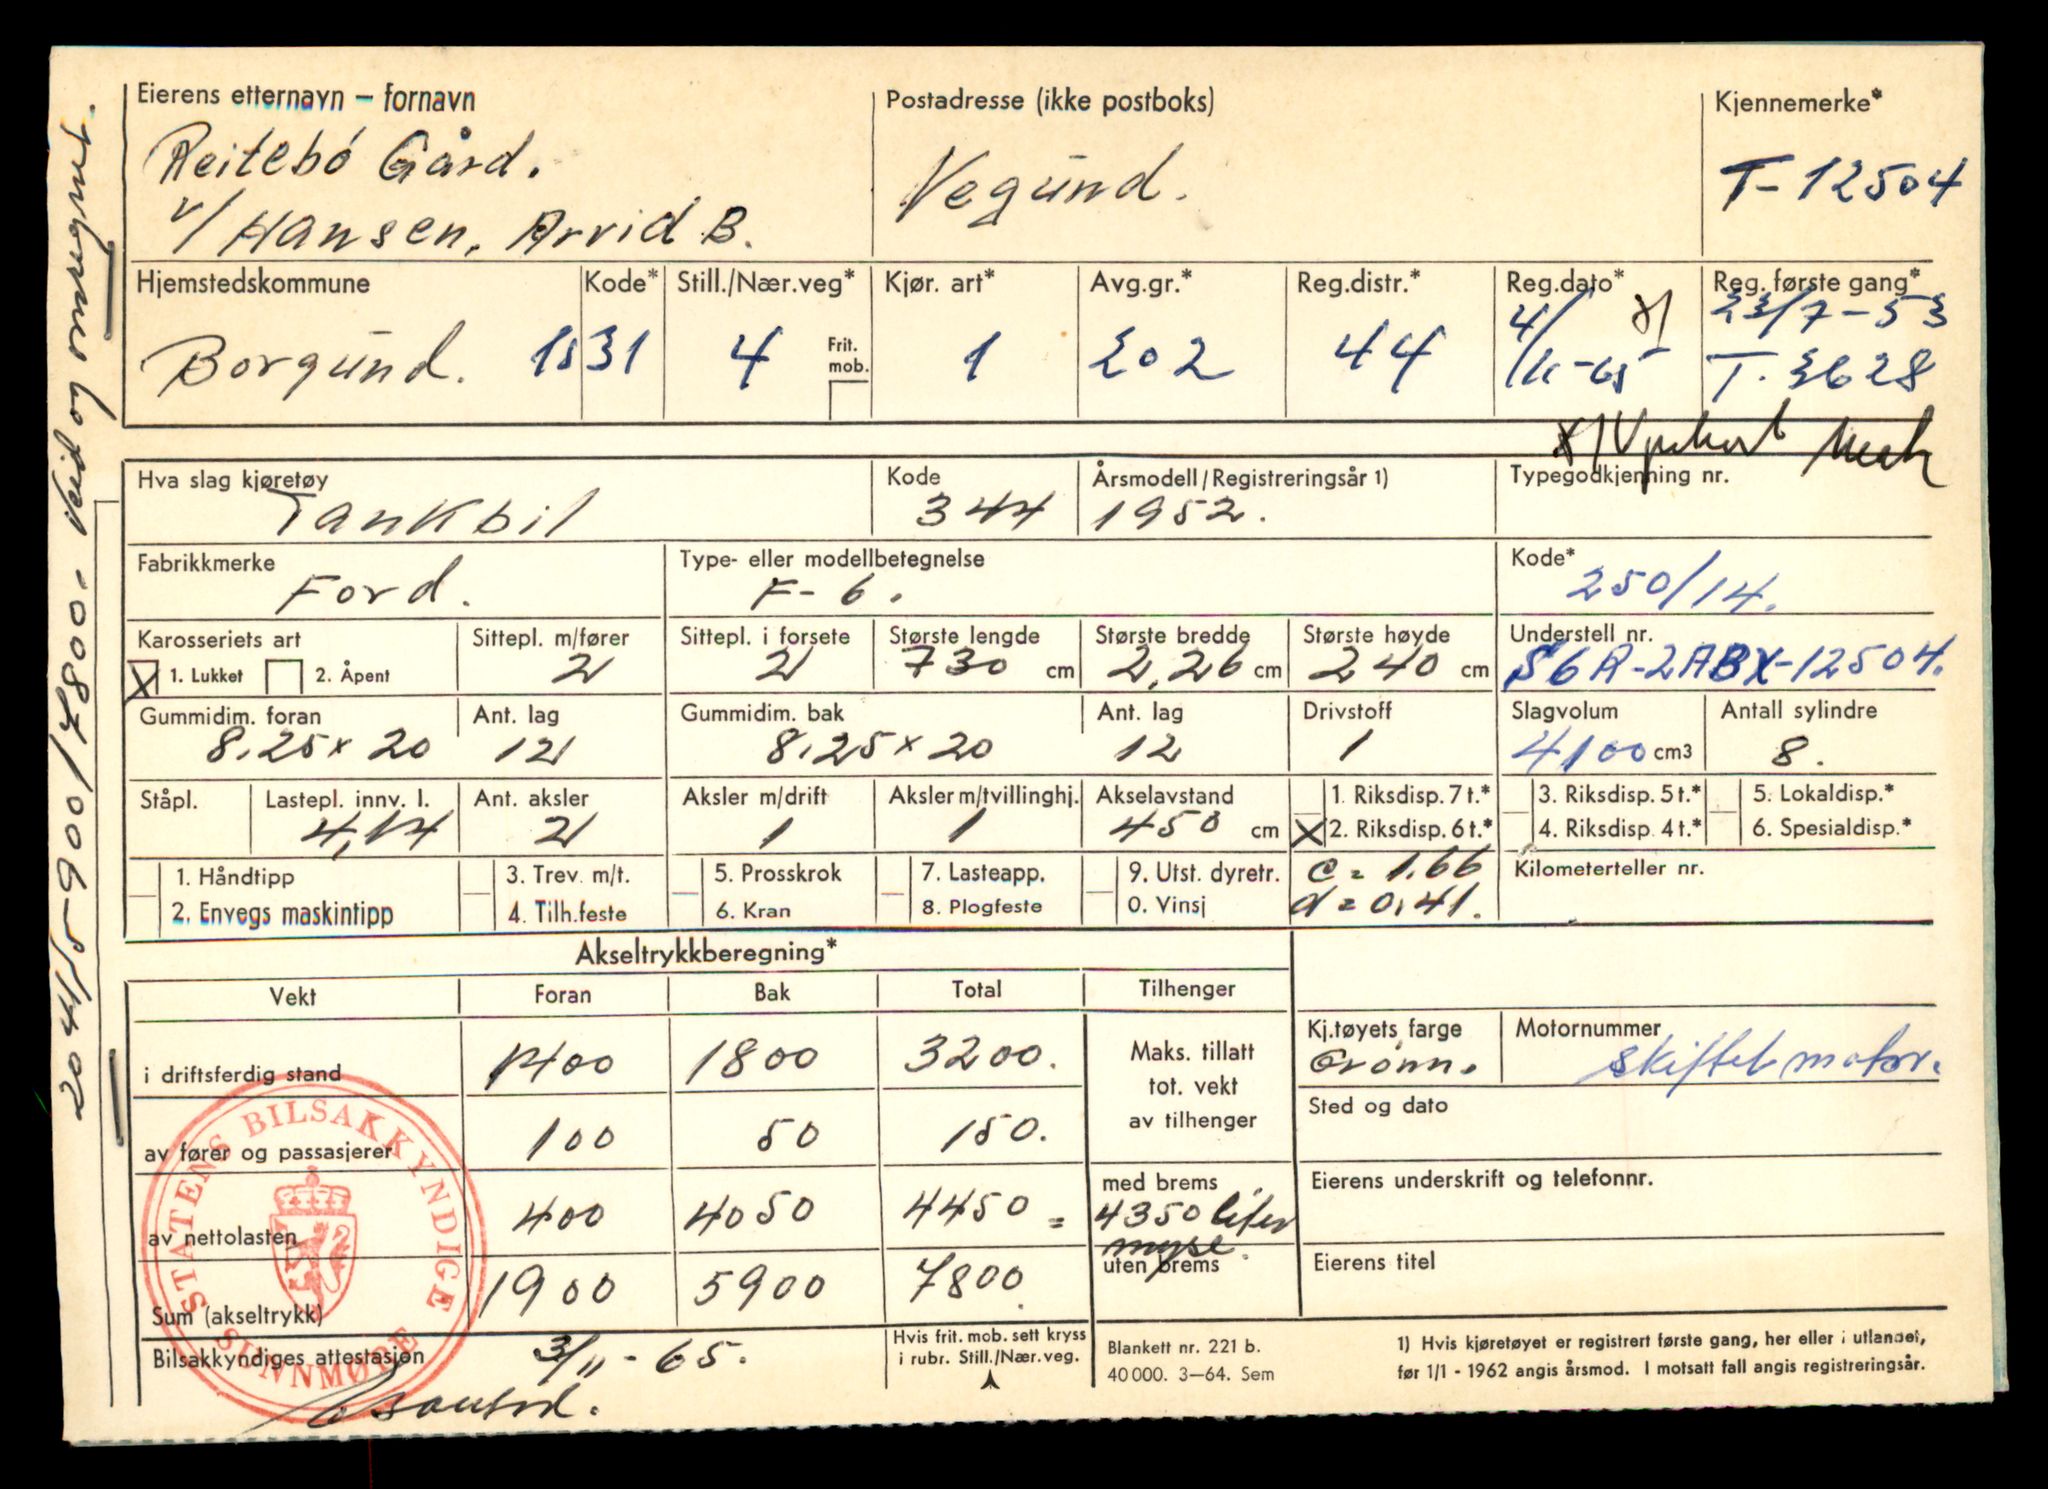 Eierens etternavn – fornavn
Reitebø Gård.
v/ Hansen, Arvid B.
Postadresse (ikke postboks)
Vegund.
Kjennemerke*
T-12504
Hjemstedskommune
Borgund.
Kode*
1531
Still./Nær.veg*
4
Frit. mob.
Kjør. art*
1
Avg.gr.*
202
Reg.distr.*
44
Reg.dato*
4/11-65 x/
Reg. første gang*
23/7-53
T. 3628
x/
Hva slag kjøretøy
Tankbil
Kode
344
Årsmodell/Registreringsår 1)
1952.
Typegodkjenning nr.
Fabrikkmerke
Ford.
Type- eller modellbetegnelse
F-6.
Kode*
250/14.
Karosseriets art
X 1. Lukket 2. Åpent
Sittepl. m/fører
2
Sittepl. i forsete
2
Største lengde
730 cm
Største bredde
2,26 cm
Største høyde
240 cm
Understell nr.
S6R-2ABX-12504.
Gummidim. foran
8.25x20
Ant. lag
12
Gummidim. bak
8.25x20
Ant. lag
12
Drivstoff
1
Slagvolum
4100 cm3
Antall sylindre
8.
Ståpl.
Lastepl. innv. l.
4,14
Ant. aksler
2
Aksler m/drift
1
Aksler m/tvillinghj.
1
Akselavstand
450 cm
1. Riksdisp. 7 t.*
X 2. Riksdisp. 6 t.*
3. Riksdisp. 5 t.*
4. Riksdisp. 4 t.*
5. Lokaldisp.*
6. Spesialdisp.*
1. Håndtipp
2. Envegs maskintipp
3. Trev. m/t.
4. Tilh.feste
5. Prosskrok
6. Kran
7. Lasteapp.
8. Plogfeste
9. Utst. dyretr.
0. Vinsj
c = 1.66
d = 0,41.
Kilometerteller nr.
Akseltrykkberegning*
Vekt Foran Bak Total Tilhenger
i driftsferdig stand 1400 1800 3200.
av fører og passasjerer 100 50 150.
av nettolasten 400 4050 4450 =
Sum (akseltrykk) 1900 5900 7800
Maks. tillatt
tot. vekt
av tilhenger
med brems
4350 liter
myse.
uten brems
Kj.tøyets farge
Grønn.
Motornummer
skiftet motor.
Sted og dato
Eierens underskrift og telefonnr.
Eierens titel
Bilsakkyndiges attestasjon
3/11-65.
Hvis frit. mob. sett kryss
i rubr. Still./Nær.veg.
Blankett nr. 221 b.
40 000. 3–64. Sem
1) Hvis kjøretøyet er registrert første gang, her eller i utlandet,
før 1/1 - 1962 angis årsmod. I motsatt fall angis registreringsår.
STATENS BILSAKKYNDIGE
SUNNMØRE